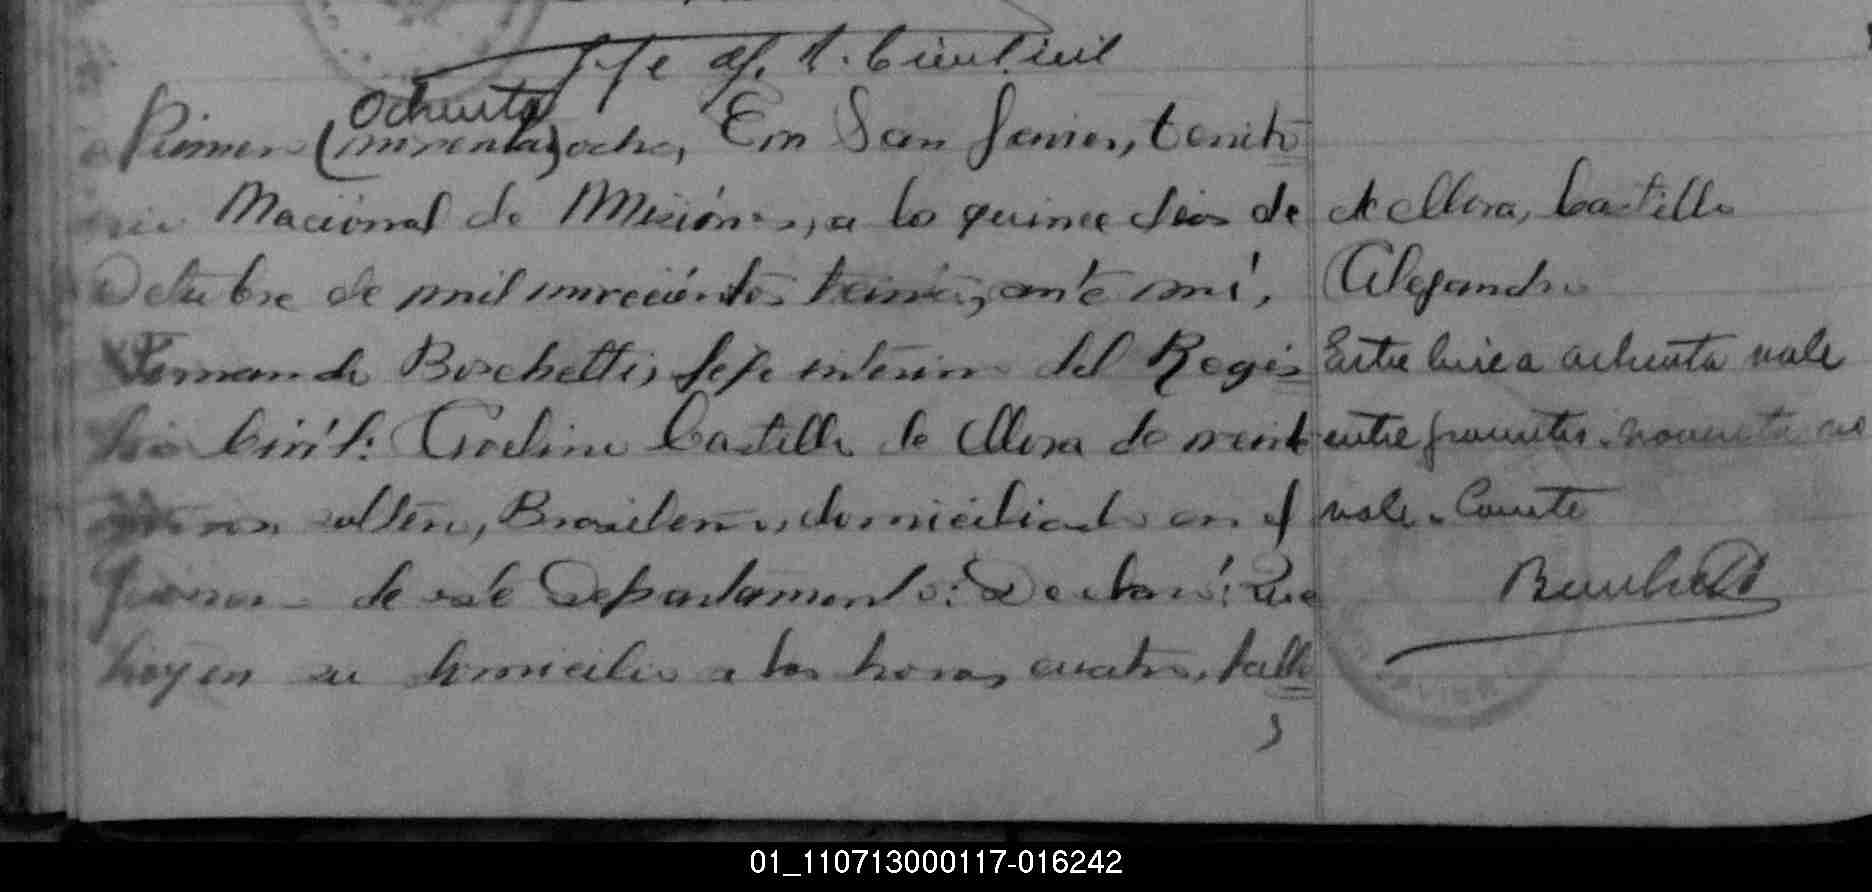 Jefe of. R. Civil civil
Número (noventa) Ochenta ocho, En San Javier, territo
rio Nacional de Misiones, a los quince dias de
Octubre de mil novecientos treinta, ante mí,
Fernando Boschetti, Jefe interino del Regis
tro Civil: Castillo de Mora de veinte
años, soltera, Brasilera, domiciliada en el
de este Departamento: Declaró: Que
hoy en su domicilio a las horas cuatro, falle
de Mora, Castillo
Alejandro
Entre linea ochenta vale
entre parentes. noventa no
vale. Conste
Boschetti
JAVIER
01_110713000117-016242